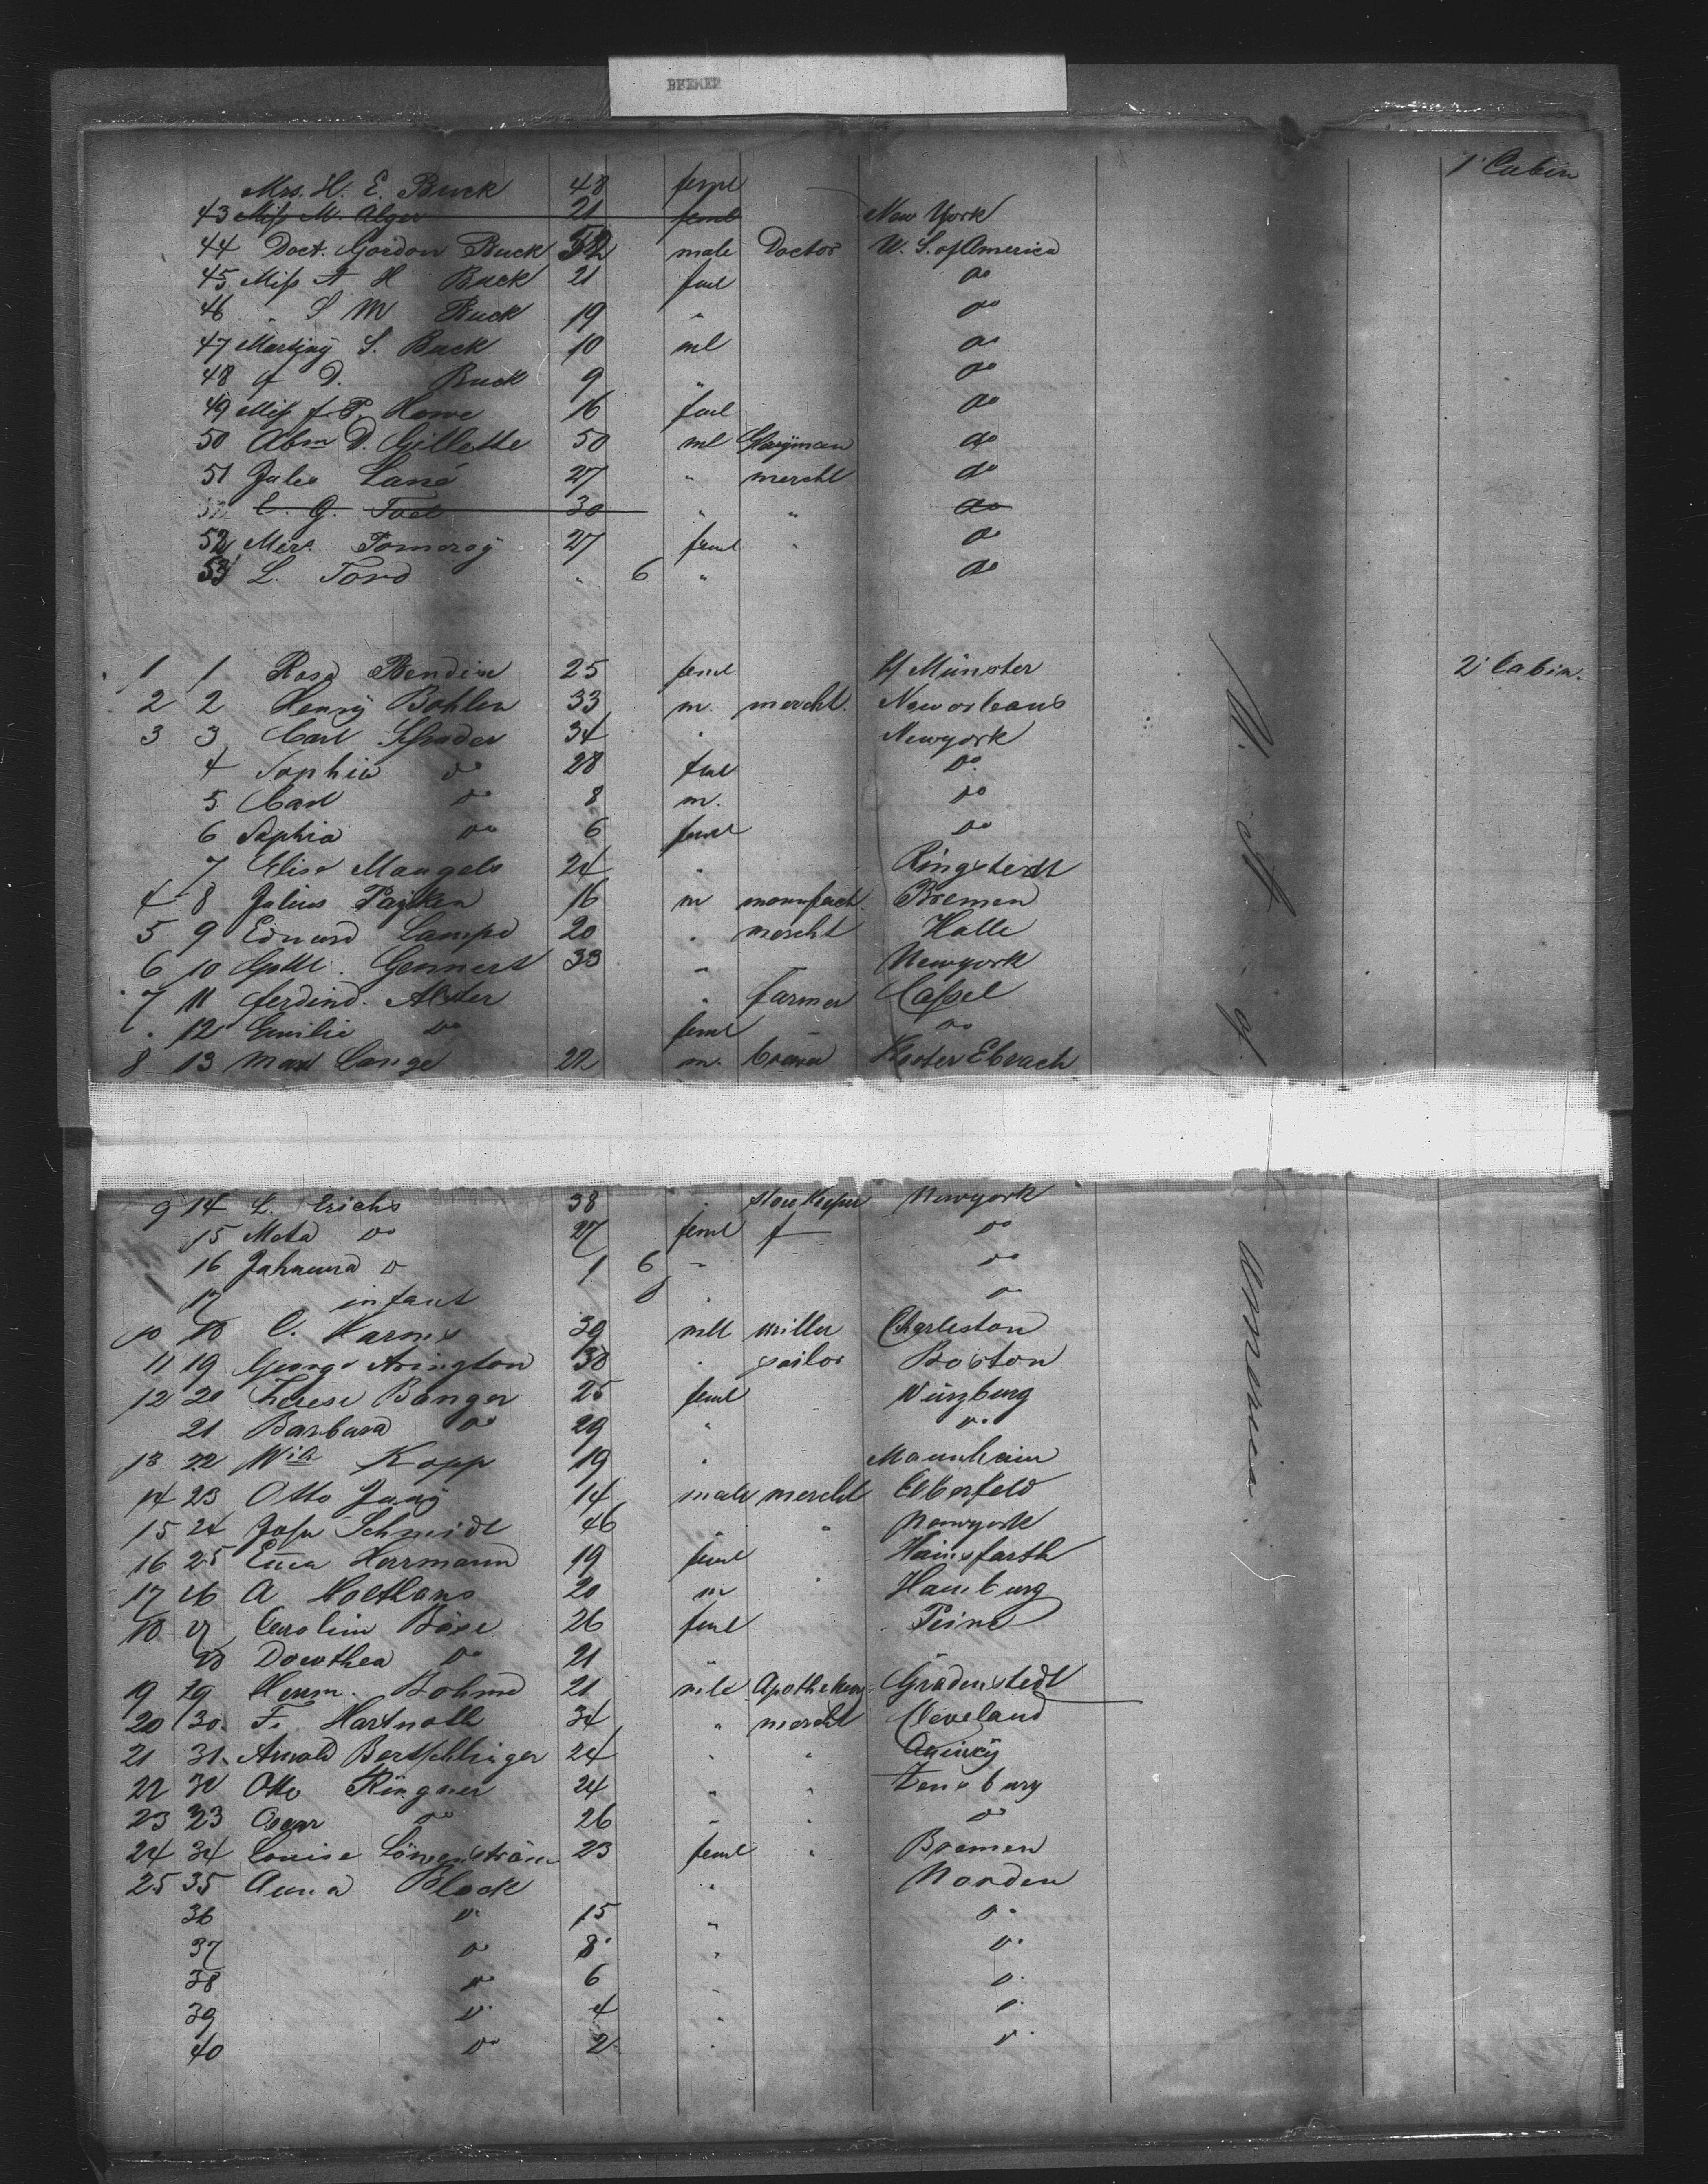 BREMEN
1' Cabin
Mrs. H. E. Buck 48 feml
43 Miss M. Alger 21 feml New York
44 Doct. Gordon Buck 52 male Doctor U. S. of America
45 Miss A H Buck 21 feml do
46 " S M Buck 19 " do
47 S. Buck 10 ml do
48 D. Buck 9 " do
49 Miss f. P. Howe 16 feml do
50 Abm D. Gillette 50 ml Clergyman do
51 Jules Lané 27 " mercht do
E. G. 30 " " do
52 Mirs Pomeroy 27 feml " do
53 L. Ford " 6 " do
2' Cabin.
1 1 Rosa Bendix 25 feml Münster
2 2 Henry Bohlen 33 m. mercht. Neworleans
3 3 Carl 34 " Newyork
4 Sophia do 28 feml do
5 Carl do 8 m. do
6 Sophia do 6 feml do
7 Elise Mangels 24 " Ringstedt
4 8 Julius 16 m manufact. Bremen
5 9 Eduard Lampe 20 " mercht Halle
6 10 Gottl. Gennert 33 " Newyork
7 11 ferdind. " farmer Cassel
12 Emilie do feml do
8 13 Max Lange 22 m. Kloster Ebrach
9 14 L. Erichs 38 " storekeeper Newyork
15 Meta do 27 feml do
16 Johanna do 1 6 " do
17 infant " do
10 18 C. Harms 39 mll miller Charleston
11 19 George Arington 30 " sailor Boston
12 20 Therese Banger 25 feml Würzburg
21 Barbara do 29 " do
13 22 Kopp 19 " Mannheim
14 23 Otto Jung 14 male mercht Elberfeld
15 24 Schmidt 46 " " Newyork
16 25 Herrmann 19 feml Hainsfarth
17 26 A 20 m " Hamburg
18 27 Carolina Böse 26 feml Peine
28 Dorothea do 21 "
19 29 Herm. Bohme 21 mle Apothekary
20 30. Fr. Hartnoth 34 " mercht Cleveland
21 31. Arnold Bertschlinger 24 " " Quincy
22 32 Otto Ringner 24 " "
23 33 Oscar do 26 " " do
24 34 Louise Löwenström 23 feml " Bremen
25 35 Anna Block " Norden
36 do 15 " do
37 do 8 " do
38 do 6 " do
39 do 4 " do
40 do 2 " do
U. St. of America.